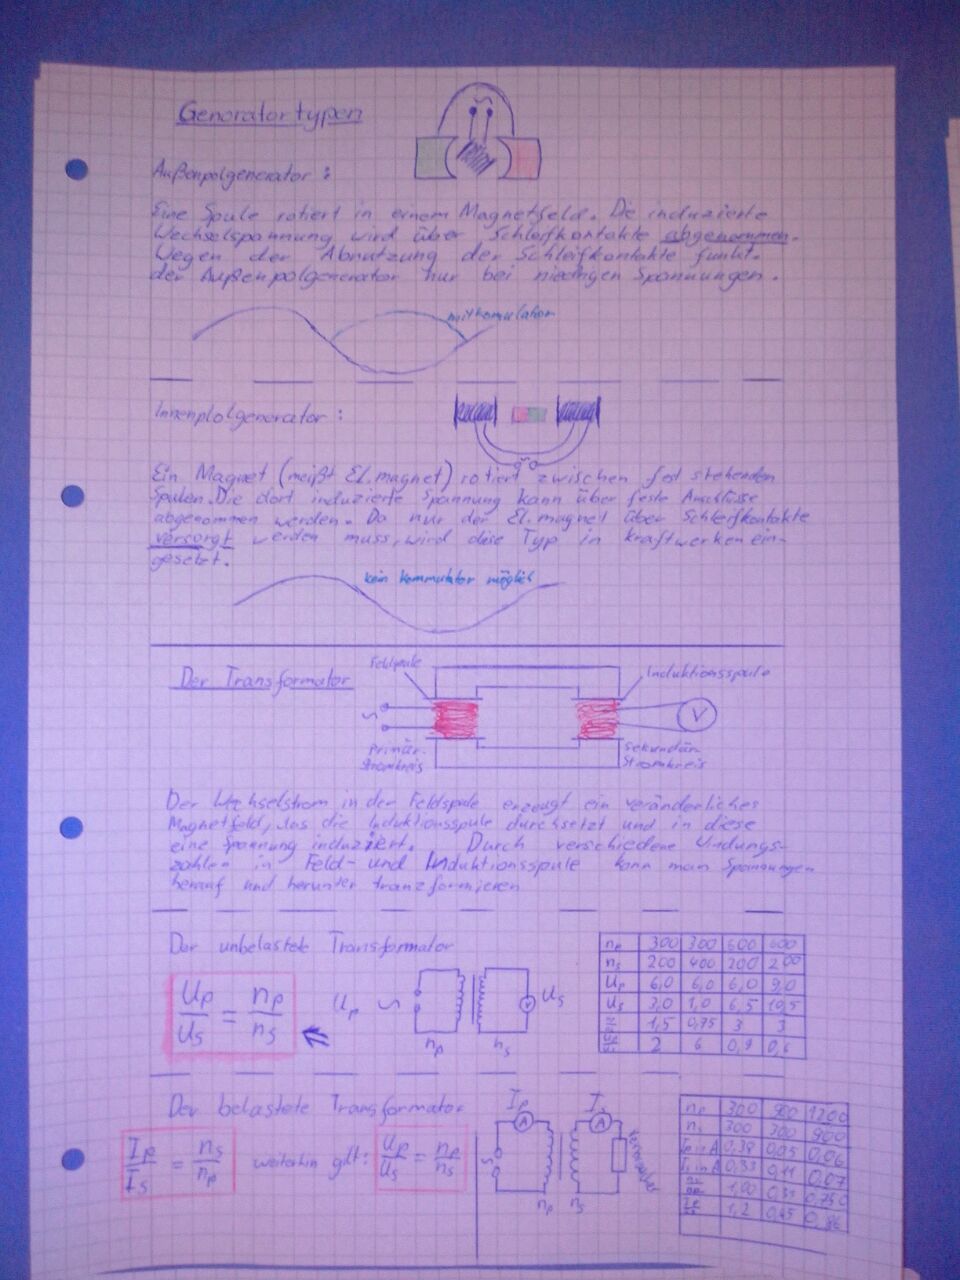 Generatortypen
Außenpolgenerator:
Eine Spule rotiert in einem Magnetfeld. Die induzierte
Wechselspannung wird über Schleifkontakte abgenommen.
Wegen der Abnutzung der Schleifkontakte funkt.
der Außenpolgenerator nur bei niedrigen Spannungen.
mit Komutator
Innenplolgenerator:
Ein Magnet (meißt El.magnet) rotiert zwischen fest stehenden
Spulen. Die dort induzierte Spannung kann über feste Anschlüsse
abgenommen werden. Da nur der El.magnet über Schleifkontakte
versorgt werden muss, wird diese Typ in kraftwerken ein-
gesetzt.
kein kommutator möglich
Der Transformator
Feldspule
Induktionsspule
~
V
Primär-
Stromkreis
Sekundär-
Stromkreis
Der Wechselstrom in der Feldspule erzeugt ein veränderliches
Magnetfeld, das die Induktionsspule durchsetzt und in diese
eine Spannung induziert. Durch verschiedene Windungs-
zahlen in Feld- und Induktionsspule kann man Spannungen
herauf und herunter tranzformieren
Der unbelastete Transformator
Up/Us = np/ns
Up ~ V Us
np ns
np 300 300 600 600
ns 200 400 200 200
Up 6,0 6,0 6,0 9,0
Us 3,0 1,0 6,5 10,5
1,5 0,75 3 3
2 6 0,9
Der belastete Transformator
Ip/Is = ns/np weiterhin gilt: Up/Us = np/ns
Ip A Is A
np ns
np 300 900 1200
ns 300 300 900
Ip in A 0,38 0,05 0,06
Is in A 0,33 0,11 0,07
1,00
1,2 0,45